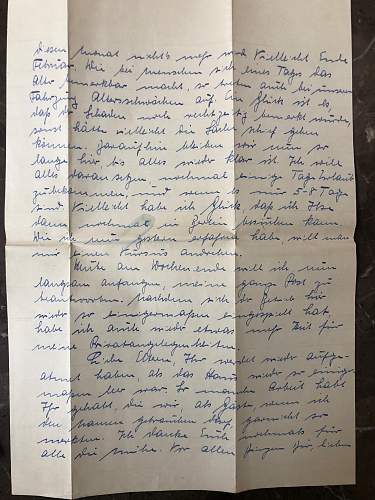 diesen Monat nichts mehr und vielleicht Ende
Februar. Wie bei Menschen sich eines Tages das
Alter bemerkbar macht, so treten auch bei unserem
Fahrzeug Altersschwächen auf. Ein Glück ist es,
daß der Schaden noch rechtzeitig bemerkt wurde,
sonst hätte vielleicht die Sache schief gehen
können. Daraufhin bleiben wir nun so
lange hier bis alles wieder klar ist. Ich will
alles daransetzen, nochmal einige Tage Urlaub
zubekommen, und wenn es nur 5-8 Tage
sind. Vielleicht habe ich Glück, daß ich Ilse
dann nochmal in besuchen kann.
Wie ich nun gestern erfahren habe, will man
mir einen Kursus andrehen.
Heute am Wochenende will ich nun
langsam anfangen, meine ganze Post zu
beantworten. Nachdem sich der Betrieb hier
wieder so einigermaßen eingespielt hat
habe ich auch wieder etwas mehr Zeit für
meine Privatangelegenheiten.
Liebe Eltern, Ihr werdet wieder aufge-
atmet haben, als das Haus wieder so einiger-
maßen leer war. So manche Arbeit habt
Ihr gehabt, die wir, als Gäste, wenn ich
den Namen gebrauchen darf, garnicht so
merkten. Ich danke Euch nochmals für
alle die Mühe. Vor allem Dingen für, lieben